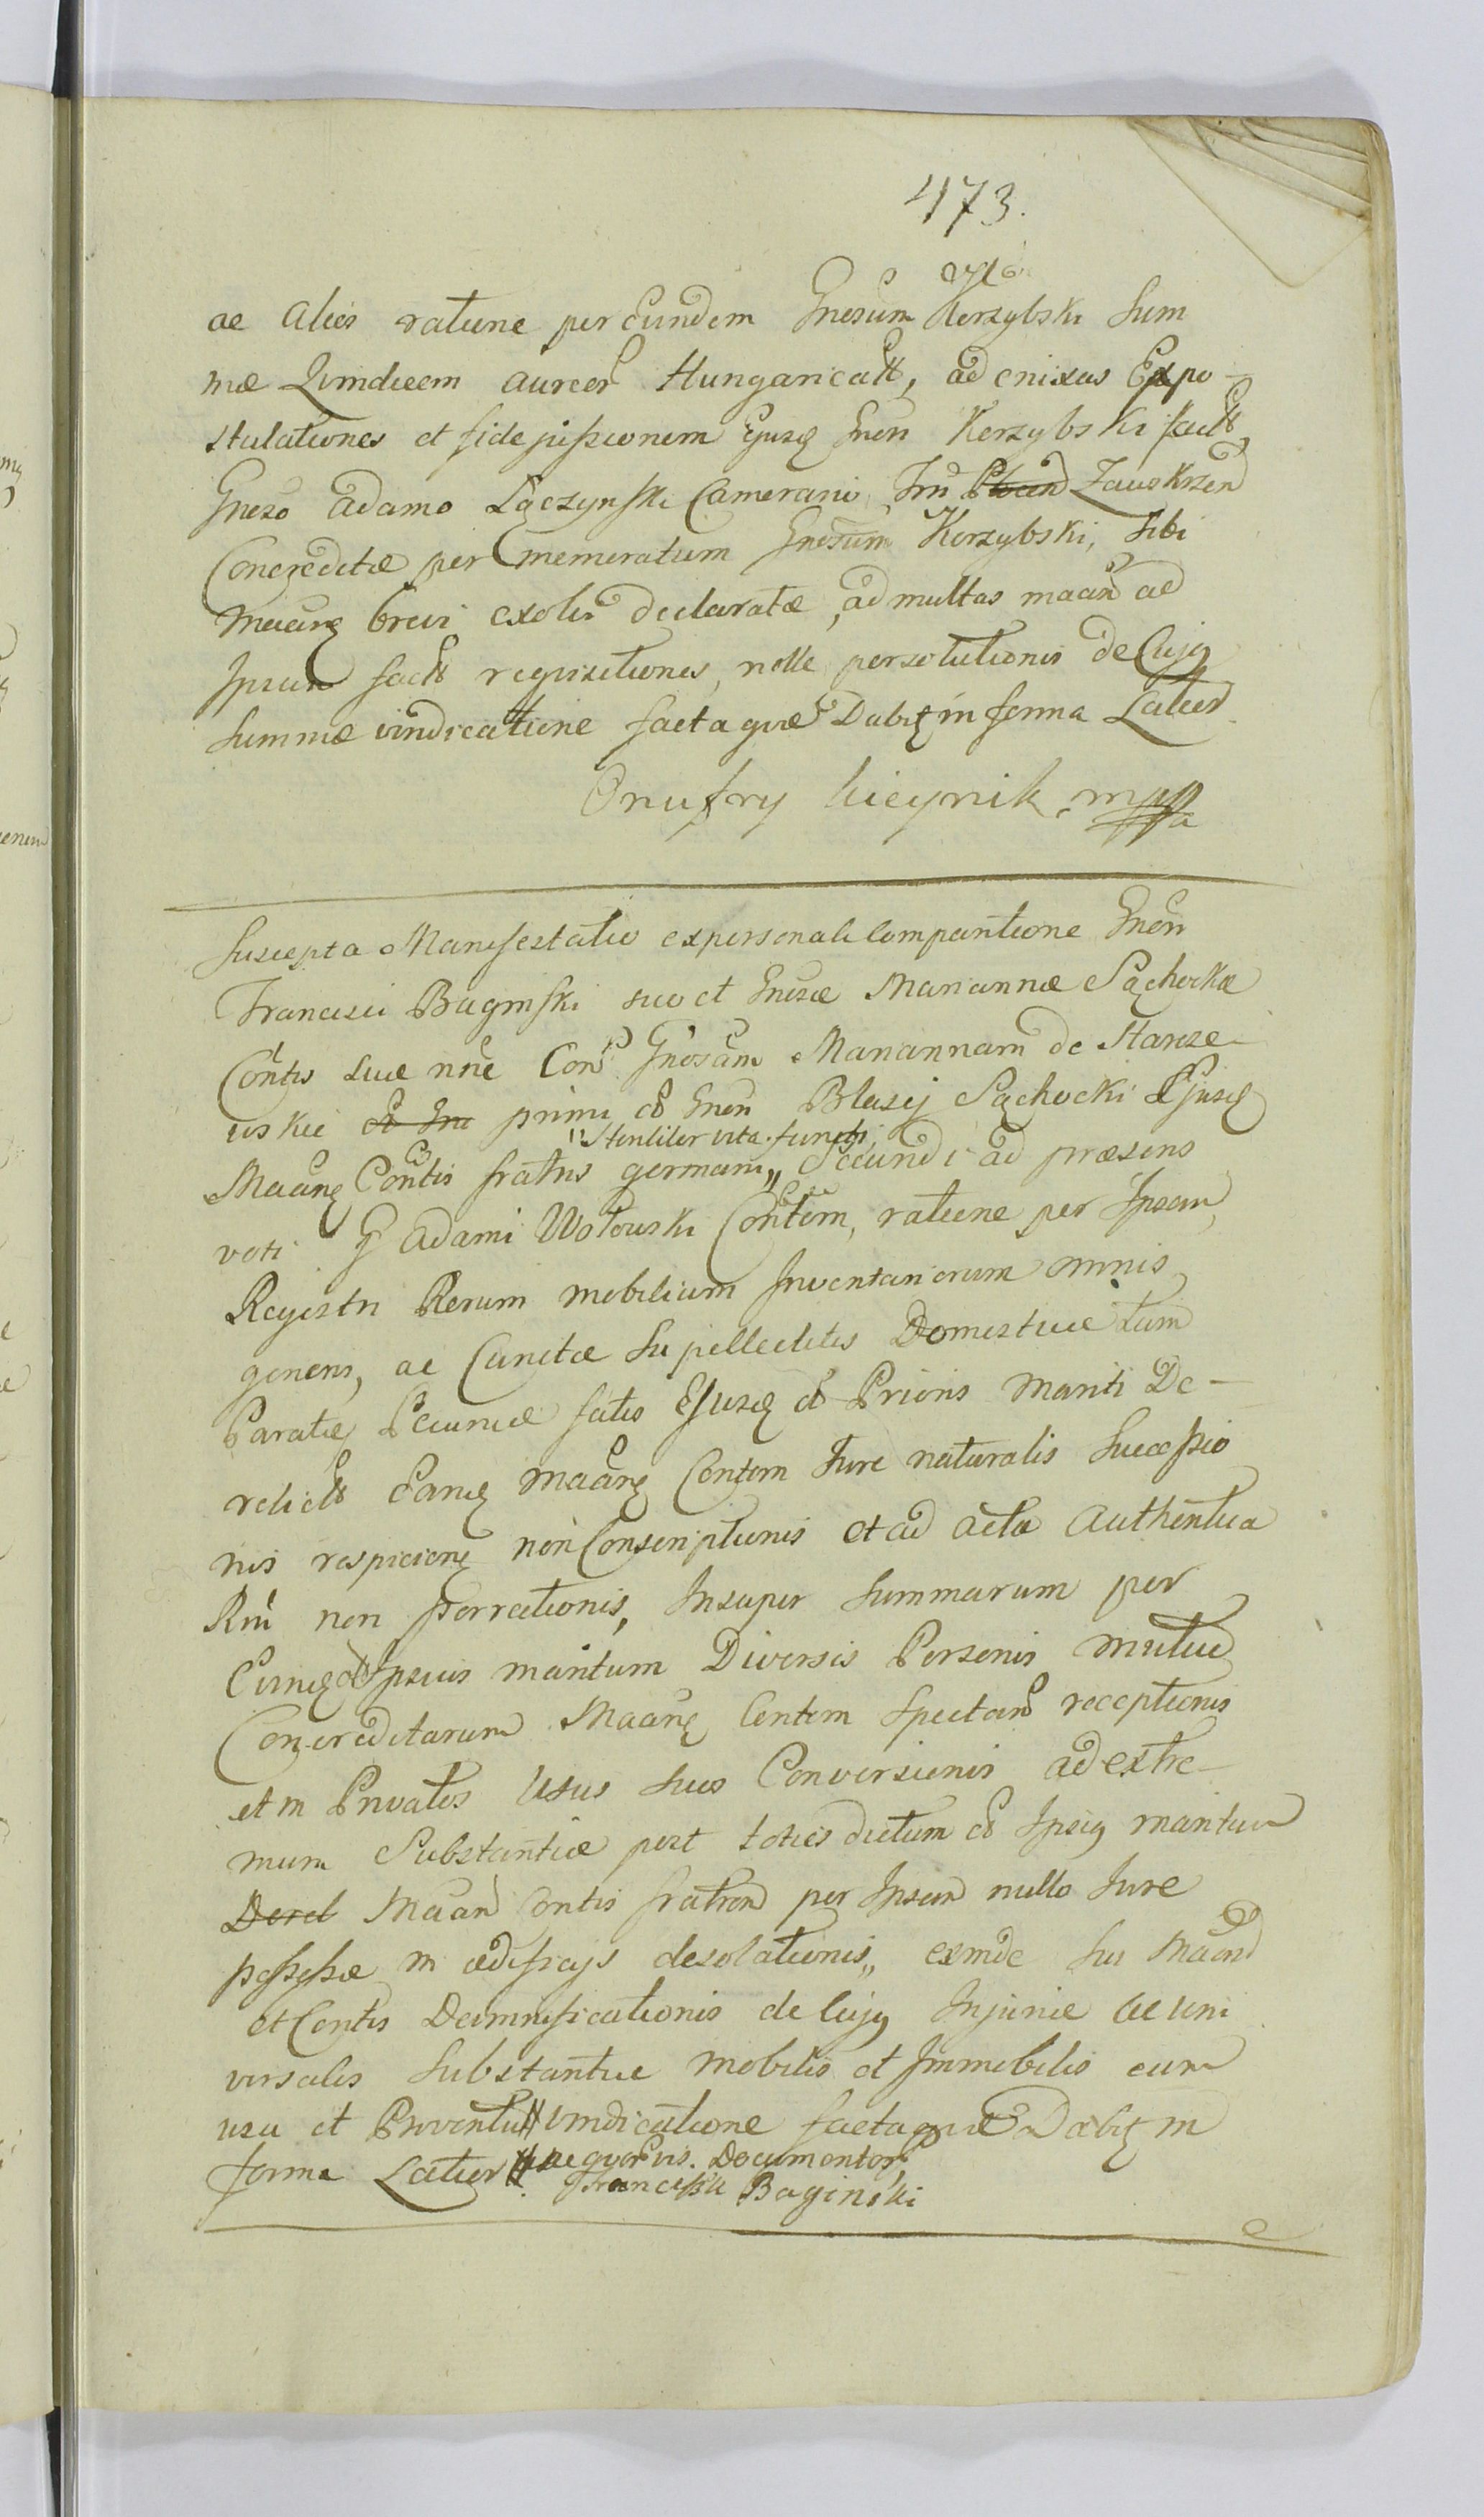 473.
ac alias ratione per eundem Gnosum Korzybski Sum
mæ Qvindecem aureor Hungaricalt, ad enixas Expo-
stulationes et fidejussionem Ejusq Gnen Korzybski fact
Gnoso Adamo Łączynski Camerario Trn Zawskrzen
Concreditæ per memoratum Gnosum Korzybski, sibi
Maanq brevi exolv declaratæ, ad multas maan ad
Ipsum fact reqvisitiones, nolle persolutionis de Cujq
Summæ vindicatione facta qvæ Dabit in forma Latior
Onufry kieynik mppa
Suscepta Manifestatio ex personali Comparitione Gnen
Francisci Baginski suo et Gnosæ Mariannæ Sąchocka
Contis suæ nne Con Gnosam Mariannam de Starze
wskie primi et Gnen Blasij Sąchocki Ejusq
"Steriliter vita functi,
Maanq Contis fratris germani " Secundi ad præsens
voti G Adami Wołowski Contem, ratione per Ipsam
Regestri Rerum mobilium Inventariorum omnis
generis, ac Cunctæ Supellectilis Domesticæ tum
Paratæ Pecuniæ fatis Ejusq et Prioris Mariti De-
relict Eamq Maanq Contem Jure naturalis Successio
nis respicienq non Conscriptionis et ad acta Authentica
Rni non porrectionis, Insuper Summarum per
Eumq et Ipsius maritum Diversis Personis mutuo
Concreditarum Maanq Contem Spectan receptionis
et in Privatos Usus suos Conversionis ad extre-
mum Substantiæ post toties dictum et Ipsiq maritum
Derel Maan Contis fratrem per Ipsam nullo Jure
possessæ in ædificijs desolationis " exinde sui Maan
et Contis Damnificationis de Cujq Injuriæ ac Uni
versalis Substantiæ Mobilis et Immobilis cum
usu et Proventu # vindicatione facta qvæ Dabit in
forma Latior # ac qvorvis Documentor
Franciszek Baginski